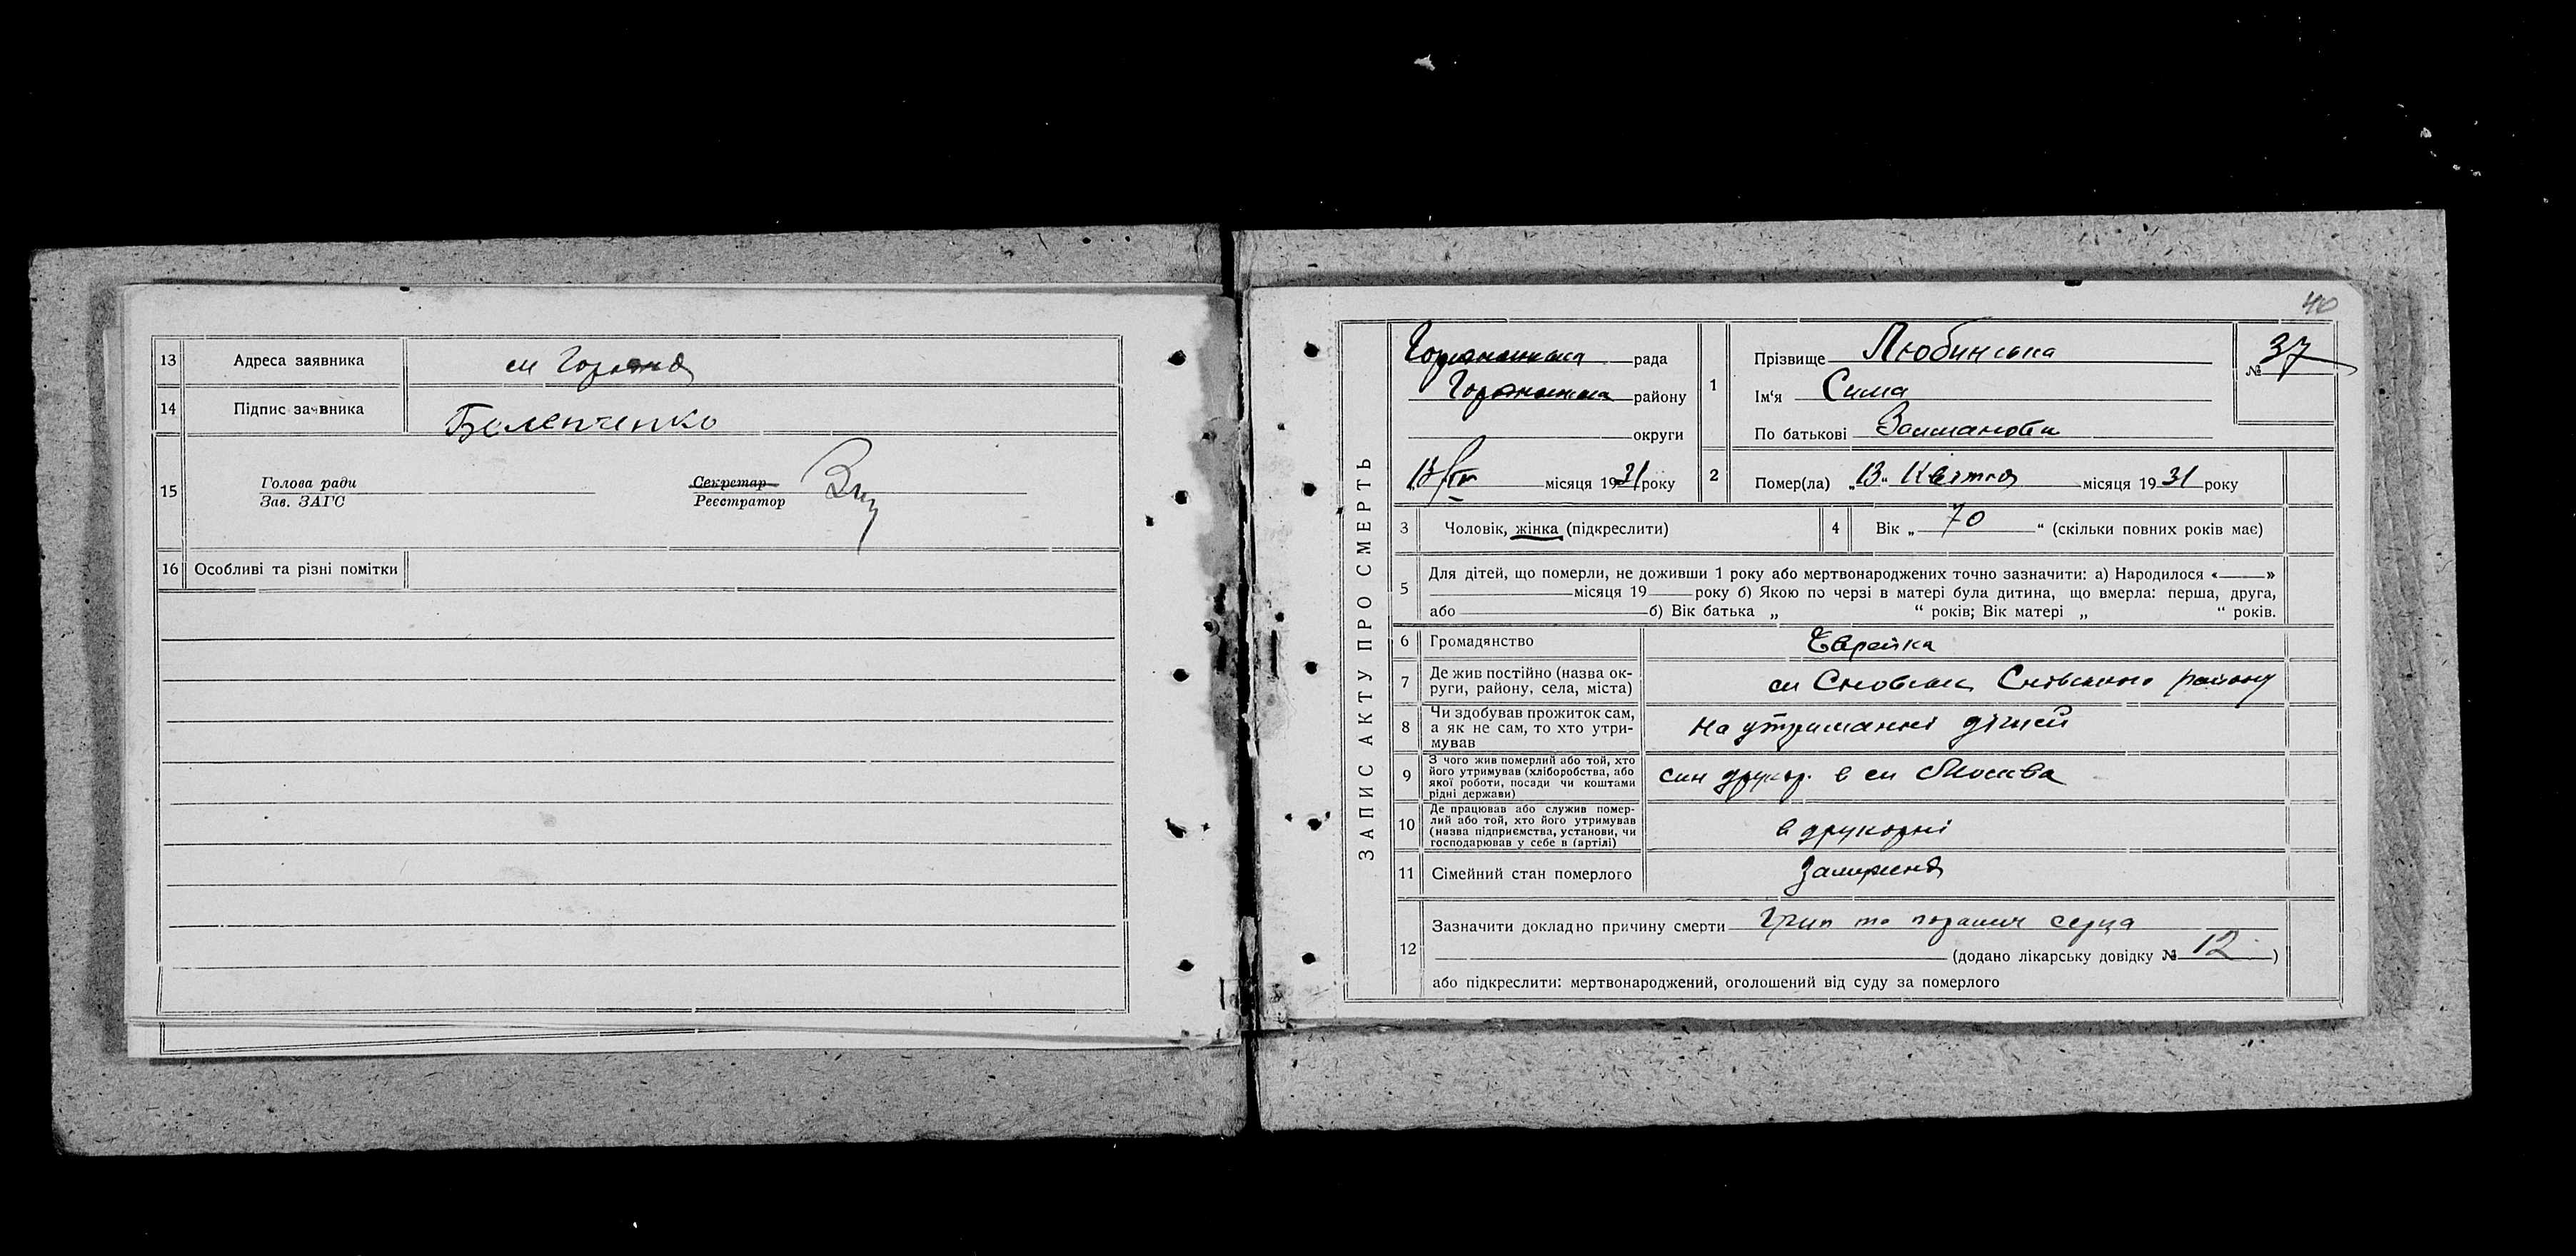 13 Адреса заявника см Городня
14 Підпис заявника Беленченко
15 Голова ради
Зав. ЗАГС
Секретар
Реєстратор
16 Особливі та різні помітки
40
ЗАПИС АКТУ ПРО СМЕРТЬ
Городнянська рада
Городнянська району
округи
13/IV місяця 1931 року
1 Прізвище Любинська
Ім'я Сима
По батькові
№ 37
2 Помер(ла) „13“ Квітня місяця 1931 року
3 Чоловік, жінка (підкреслити)
4 Вік „ 70 “ (скільки повних років має)
5 Для дітей, що померли, не доживши 1 року або мертвонароджених точно зазначити: а) Народилося « »
місяця 19 року б) Якою по черзі в матері була дитина, що вмерла: перша, друга,
або б) Вік батька „ “ років; Вік матері „ “ років.
6 Громадянство Єврейка
7 Де жив постійно (назва ок-
руги, району, села, міста) см Сновськ Сновського району
8 Чи здобував прожиток сам,
а як не сам, то хто утри-
мував На утриманні дітей
9 З чого жив померлий або той, хто
його утримував (хліборобства, або
якої роботи, посади чи коштами
рідні держави) син друкар. в см Москва
10 Де працював або служив помер-
лий або той, хто його утримував
(назва підприємства, установи, чи
господарював у себе в (артілі) в друкорні
11 Сімейний стан померлого Замужня
12 Зазначити докладно причину смерти Грип та параліч серця
(додано лікарську довідку № 12 )
або підкреслити: мертвонароджений, оголошений від суду за померлого